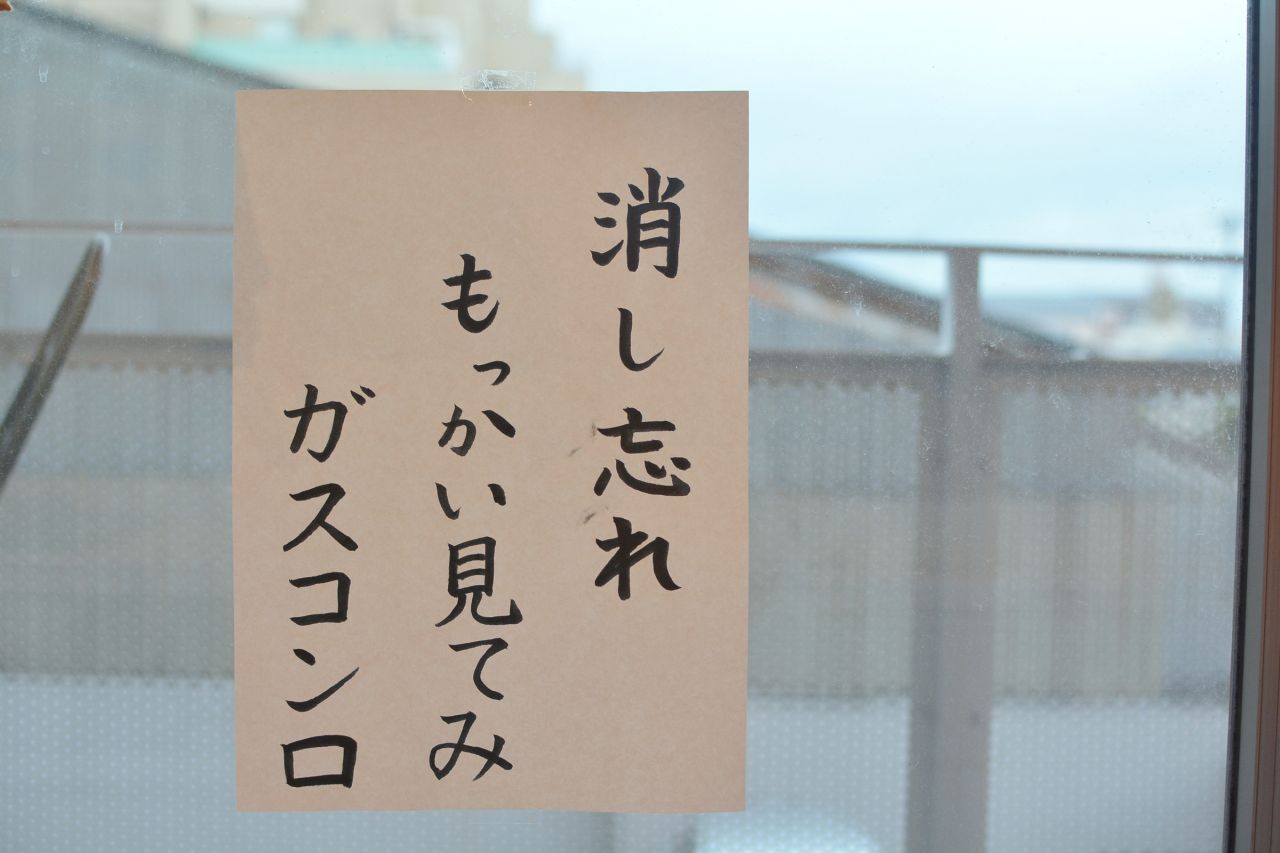 消し忘れ
もっかい見てみ
ガスコンロ